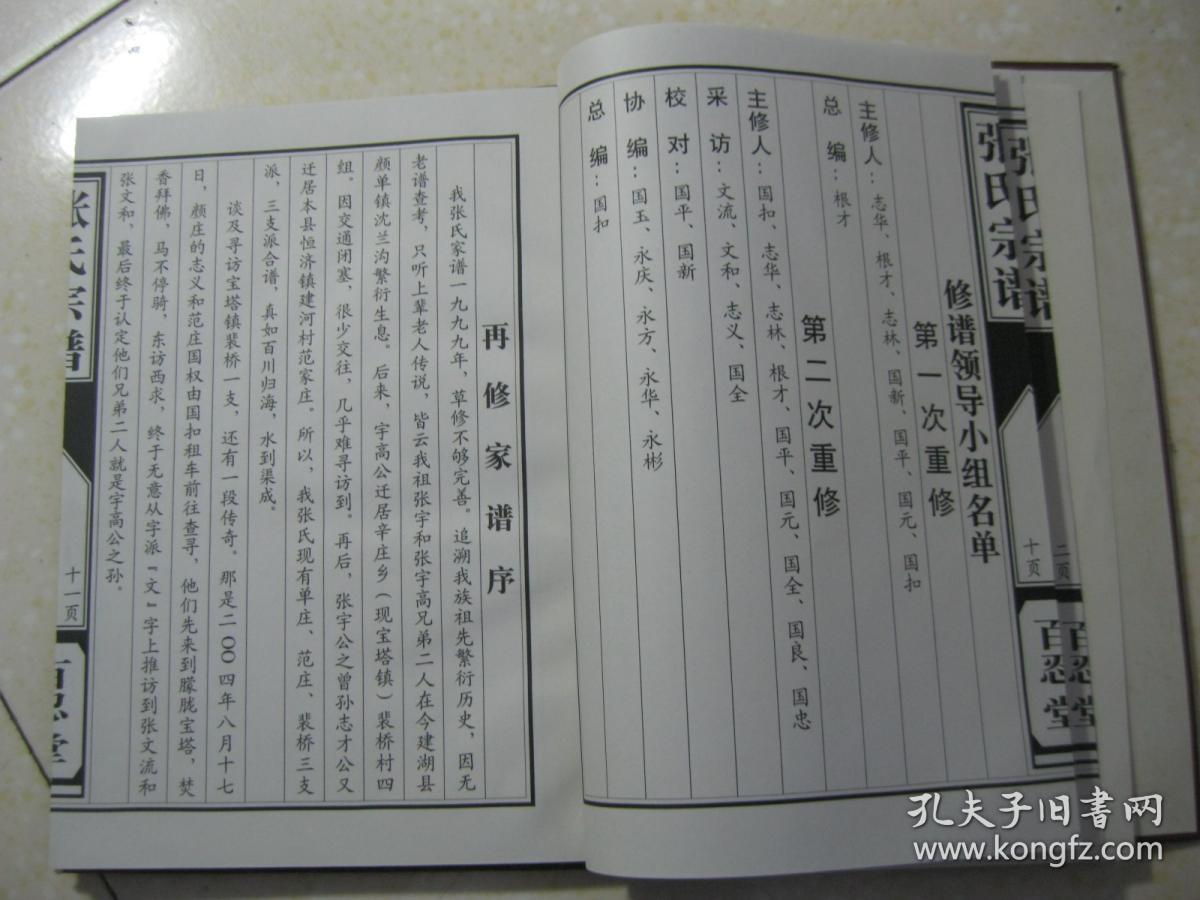 张氏宗谱
二页
百忍堂
张氏宗谱
十页
百忍堂
修谱领导小组名单
第一次重修
主修人：志华、根才、志林、国新、国平、国元、国扣
总编：根才
第二次重修
主修人：国扣、志华、志林、根才、国平、国元、国全、国良、国忠
采访：文流、文和、志义、国全
校对：国平、国新
协编：国玉、永庆、永方、永华、永彬
总编：国扣
再修家谱序
我张氏家谱一九九九年，草修不够完善。追溯我族祖先繁衍历史，因无
老谱查考，只听上辈老人传说，皆云我祖张宇和张宇高兄弟二人在今建湖县
颜单镇沈兰沟繁衍生息。后来，宇高公迁居辛庄乡（现宝塔镇）裴桥村四
组。因交通闭塞，很少交往，几乎难寻访到。再后，张宇公之曾孙志才公又
迁居本县恒济镇建河村范家庄。所以，我张氏现有单庄、范庄、裴桥三支
派，三支派合谱，真如百川归海，水到渠成。
谈及寻访宝塔镇裴桥一支，还有一段传奇。那是二〇〇四年八月十七
日，颜庄的志义和范庄国权由国扣租车前往查寻，他们先来到朦胧宝塔，焚
香拜佛，马不停骑，东访西求，终于无意从字派“文”字上推访到张文流和
张文和，最后终于认定他们兄弟二人就是宇高公之孙。
张氏宗谱
十一页
百忍堂
孔夫子旧书网
www.kongfz.com